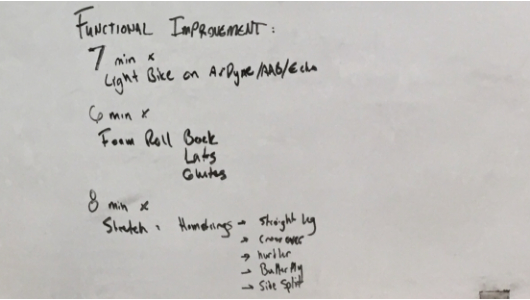 FUNCTIONAL IMPROVEMENT:
7 min x
Light Bike on ArDyne/AAB/Echo
6 min x
Foam Roll Back
Lats
Glutes
8 min x
Stretch: Hamstrings → Straight leg
→ Cross over
→ hurdler
→ Butterfly
→ Side Split